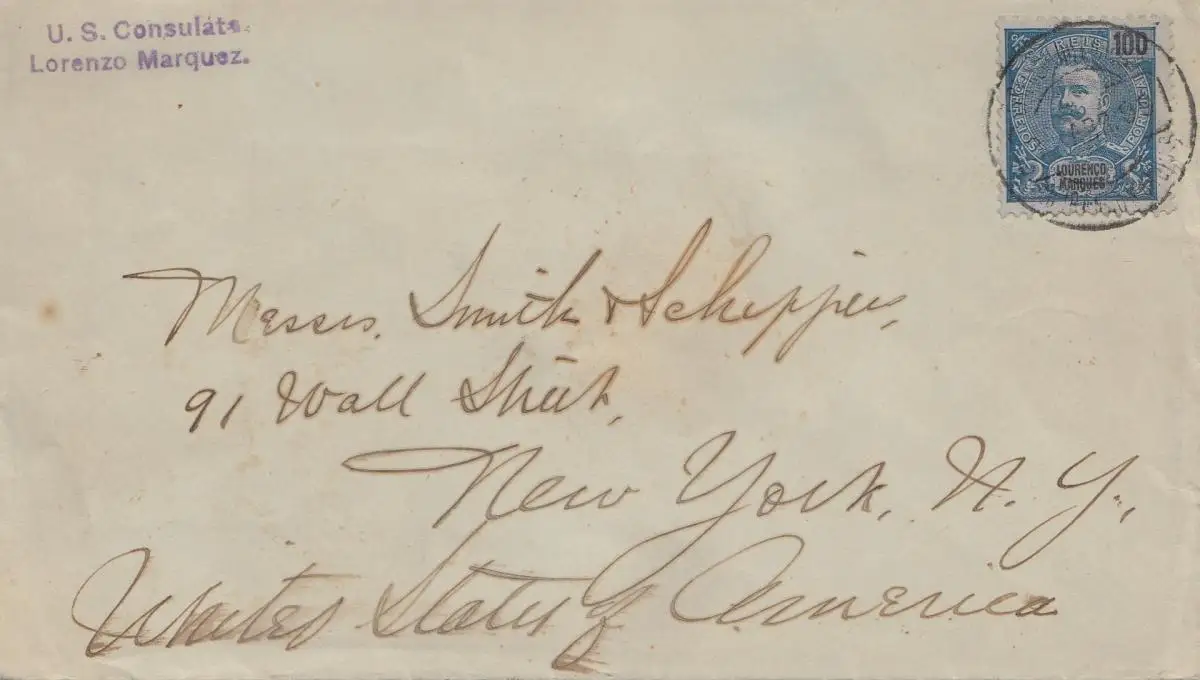 U. S. Consulate.
Lorenzo Marquez.
REIS 100
LOURENÇO
MARQUES
Messrs. Smith & Schippers,
91 Wall Street,
New York, N. Y.,
United States of America